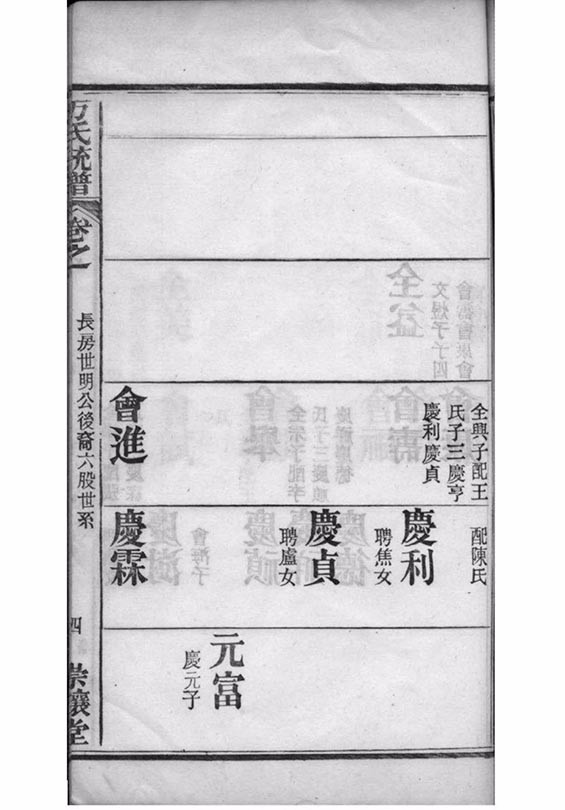 全興子配王
氏子三慶亨
慶利慶貞
會進
配陳氏
慶利
聘焦女
慶貞
聘盧女
慶霖
元富
慶元子
氏統譜
卷之
長房世明公後裔六股世系
四
堂